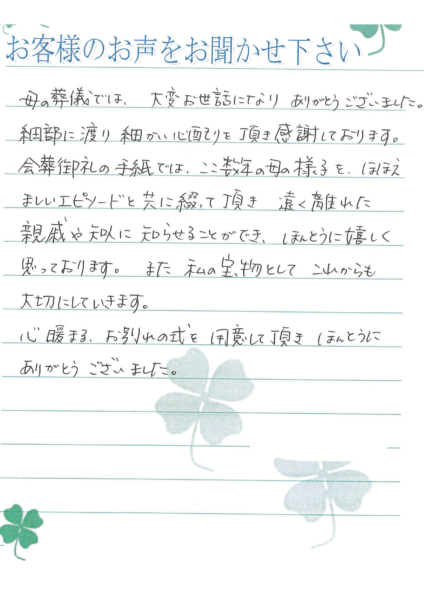 お客様のお声をお聞かせ下さい
母の葬儀では、大変お世話になり ありがとうございました。
細部に渡り細かい心配りを頂き感謝しております。
会葬御礼の手紙では、ここ数年の母の様子を、ほほえ
ましいエピソードと共に綴って頂き 遠く離れた
親戚や知人に知らせることができ、ほんとうに嬉しく
思っております。また 私の宝物として これからも
大切にしていきます。
心暖まる、お別れの式を用意して頂き ほんとうに
ありがとうございました。